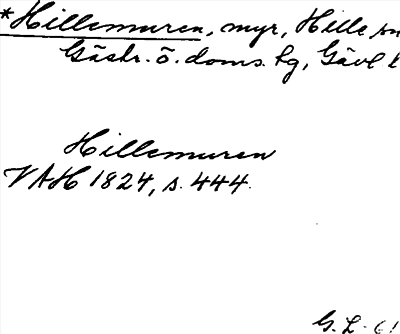 *Hillemuren, myr, Hille sn
Gästr. ö. doms. hg, Gävl l
Hillemuren
VAH 1824, s. 444.
G. L. 61